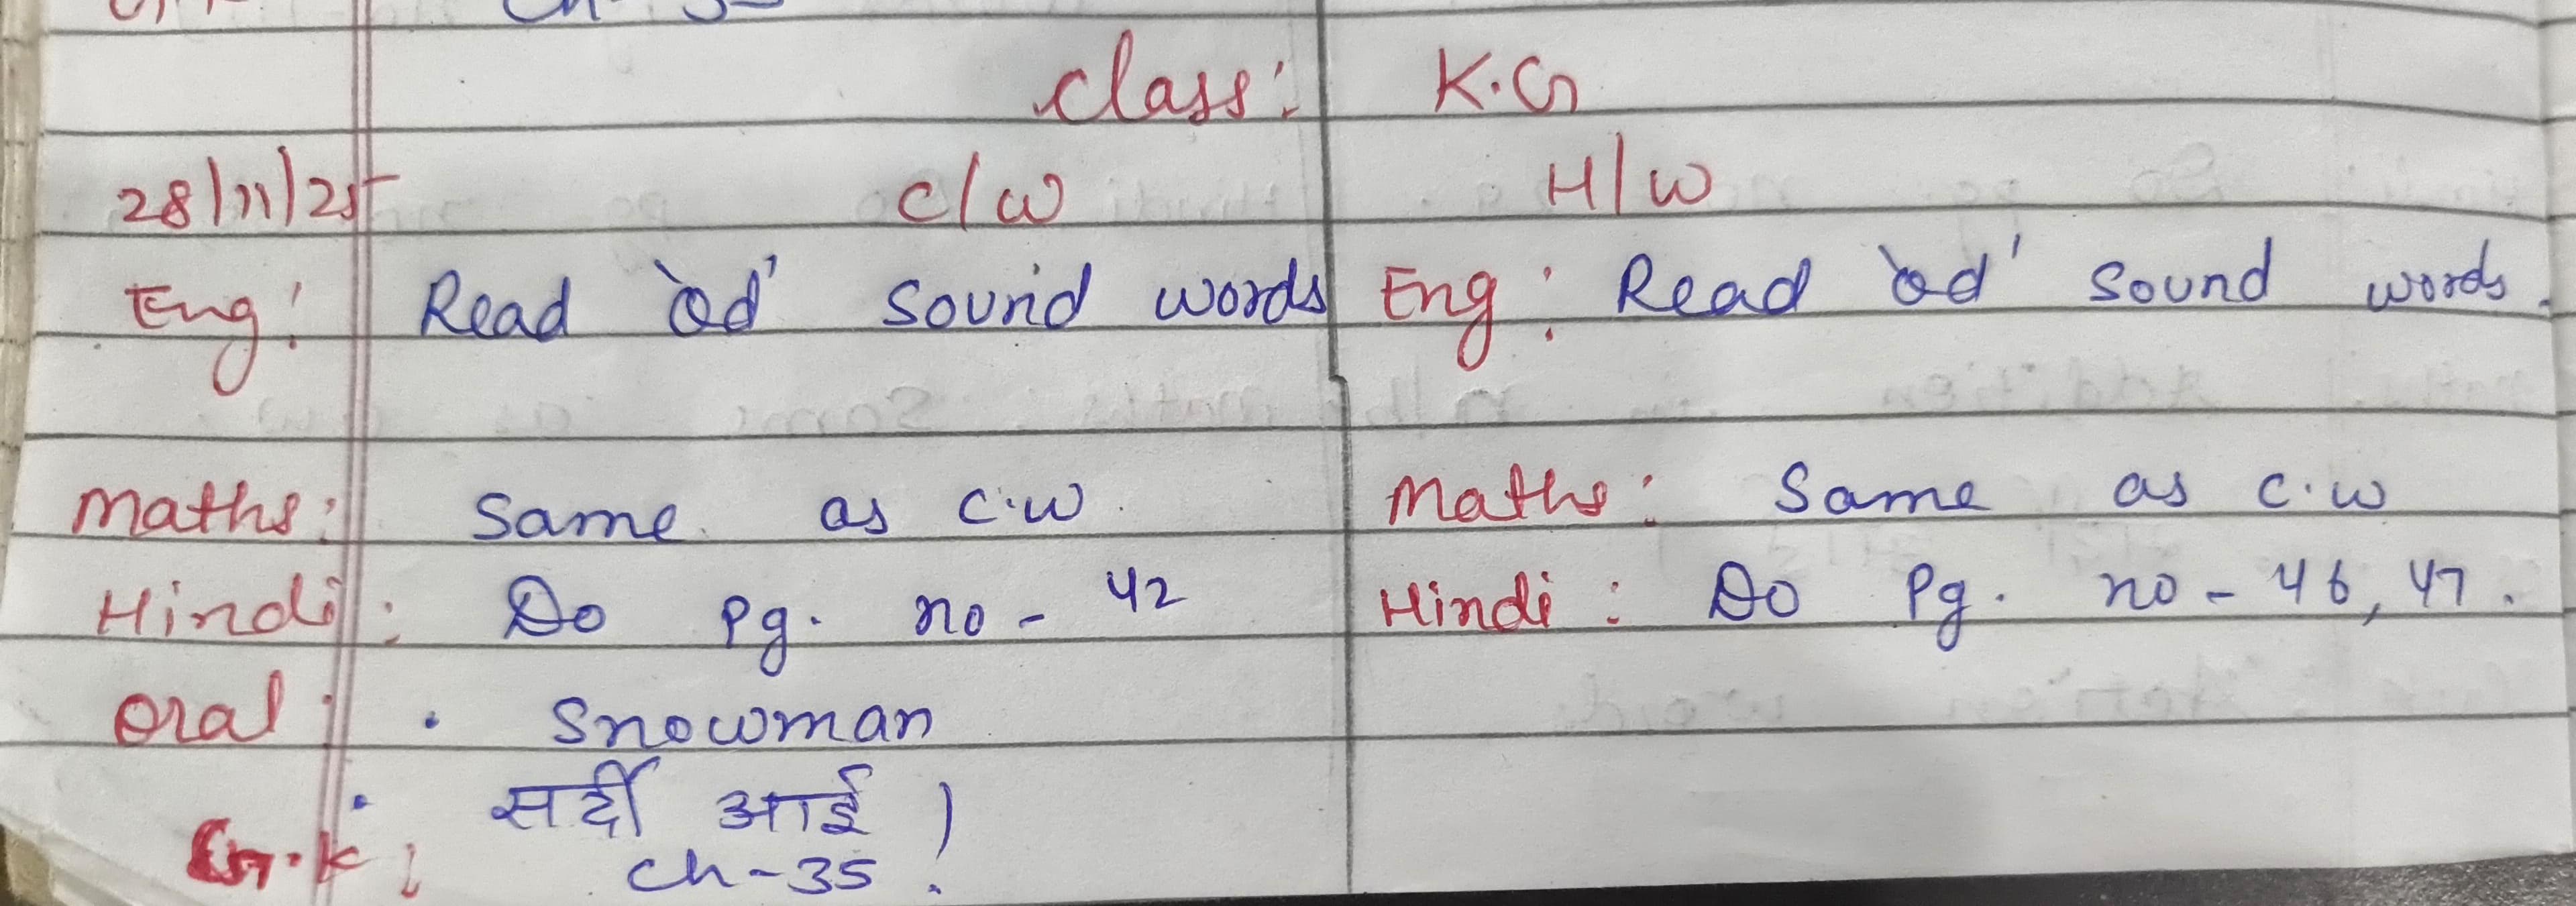 Ch-35
Class: K.G
28/11/25 C/W H/W
Eng: Read 'od' sound words Eng: Read 'od' sound words.
Maths: Same as C.W Maths: Same as C.W
Hindi: Do Pg. no - 42 Hindi: Do Pg. no - 46, 47.
Oral: • Snowman
• सर्दी आई !
G.K: Ch-35